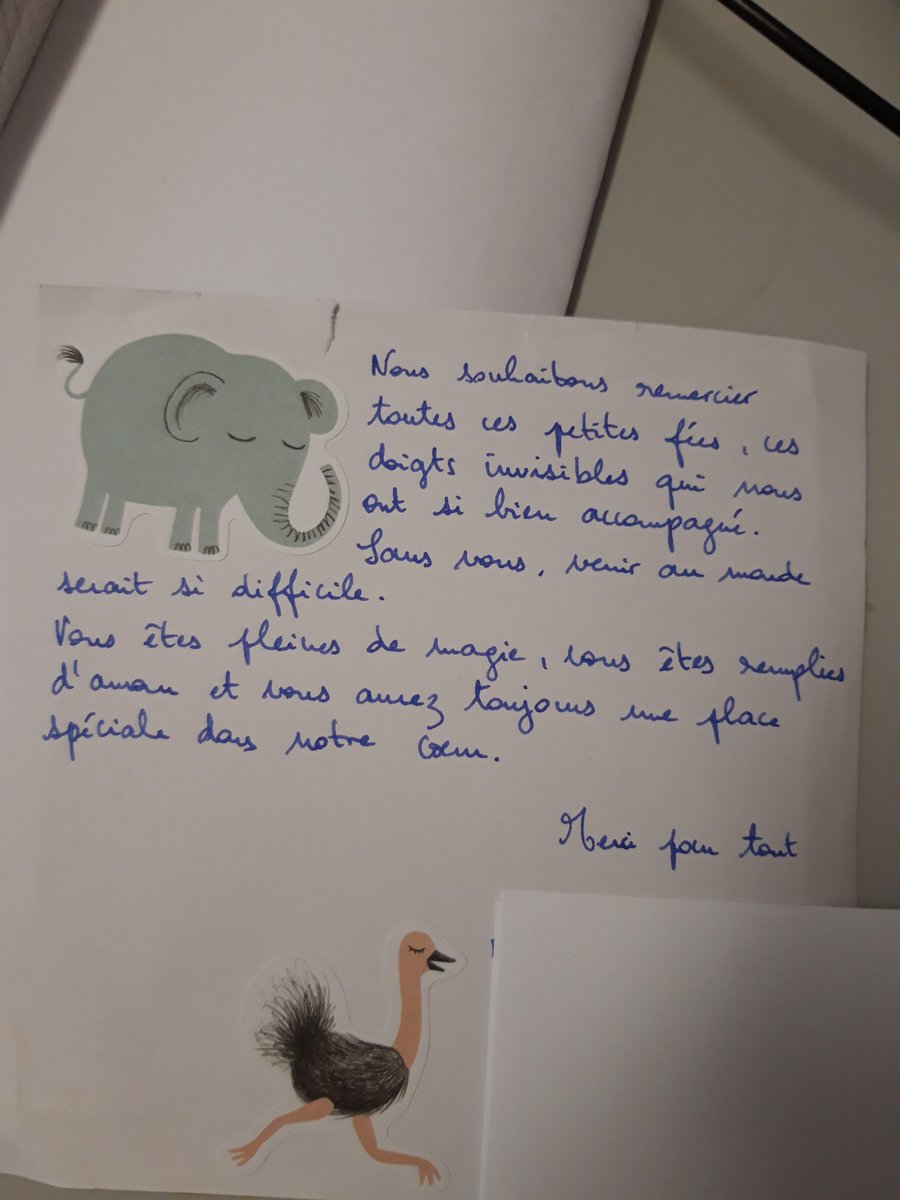 Nous souhaitons remercier
toutes ces petites fées, ces
doigts invisibles qui nous
ont si bien accompagné.
Sans vous, venir au monde
serait si difficile.
Vous êtes pleines de magie, vous êtes remplies
d'amour et vous aurez toujours une place
spéciale dans notre cœur.
Merci pour tout